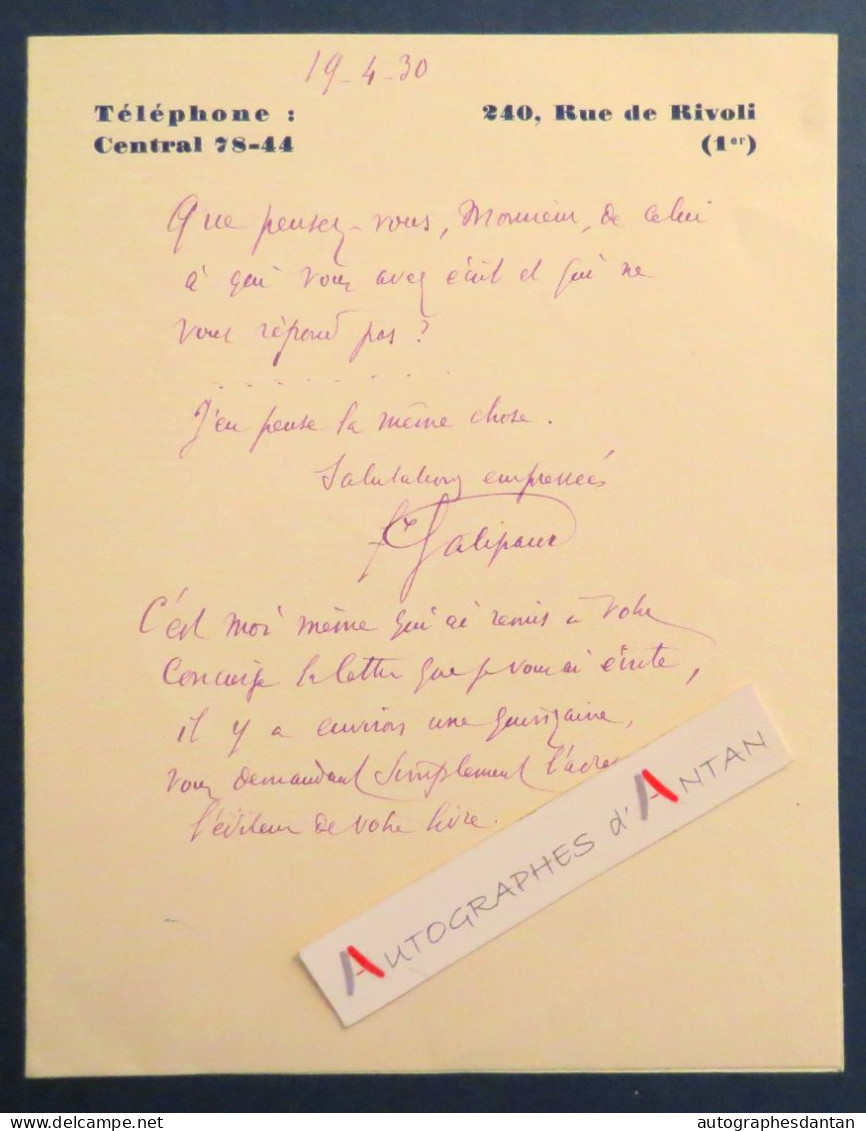 19-4-30
Téléphone : 240, Rue de Rivoli
Central 78-44 (1er)
Que pensez-vous, Monsieur, de celui
à qui vous avez écrit et qui ne
vous répond pas ?
. . . . . . . . .
J'en pense la même chose.
Salutations empressées
Galipaux
C'est moi même qui ai remis à votre
Concierge la lettre que je vous ai écrite,
il y a environ une quinzaine,
vous demandant simplement
l'éditeur de votre livre.
AUTOGRAPHES d'ANTAN
delcampe.net
autographesdantan